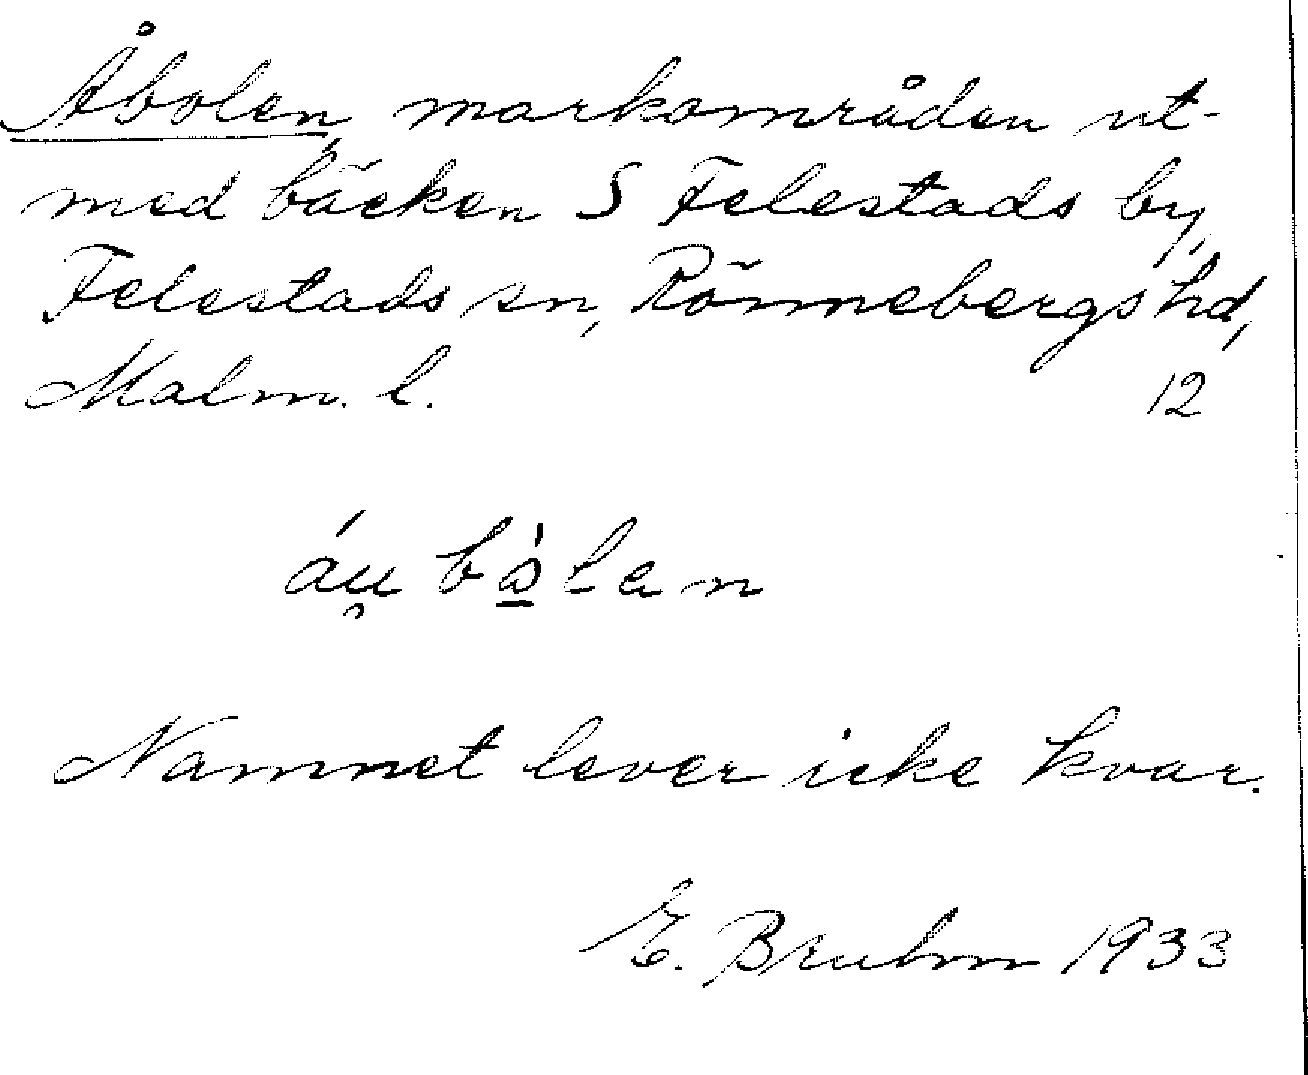 Åbolen, markområden ut-
med bäcken S Felestads by,
Felestads sn, Rönnebergs hd,
Malm. l. 12
áu̯ bòlen
Namnet lever icke kvar.
E. Bruhn 1933